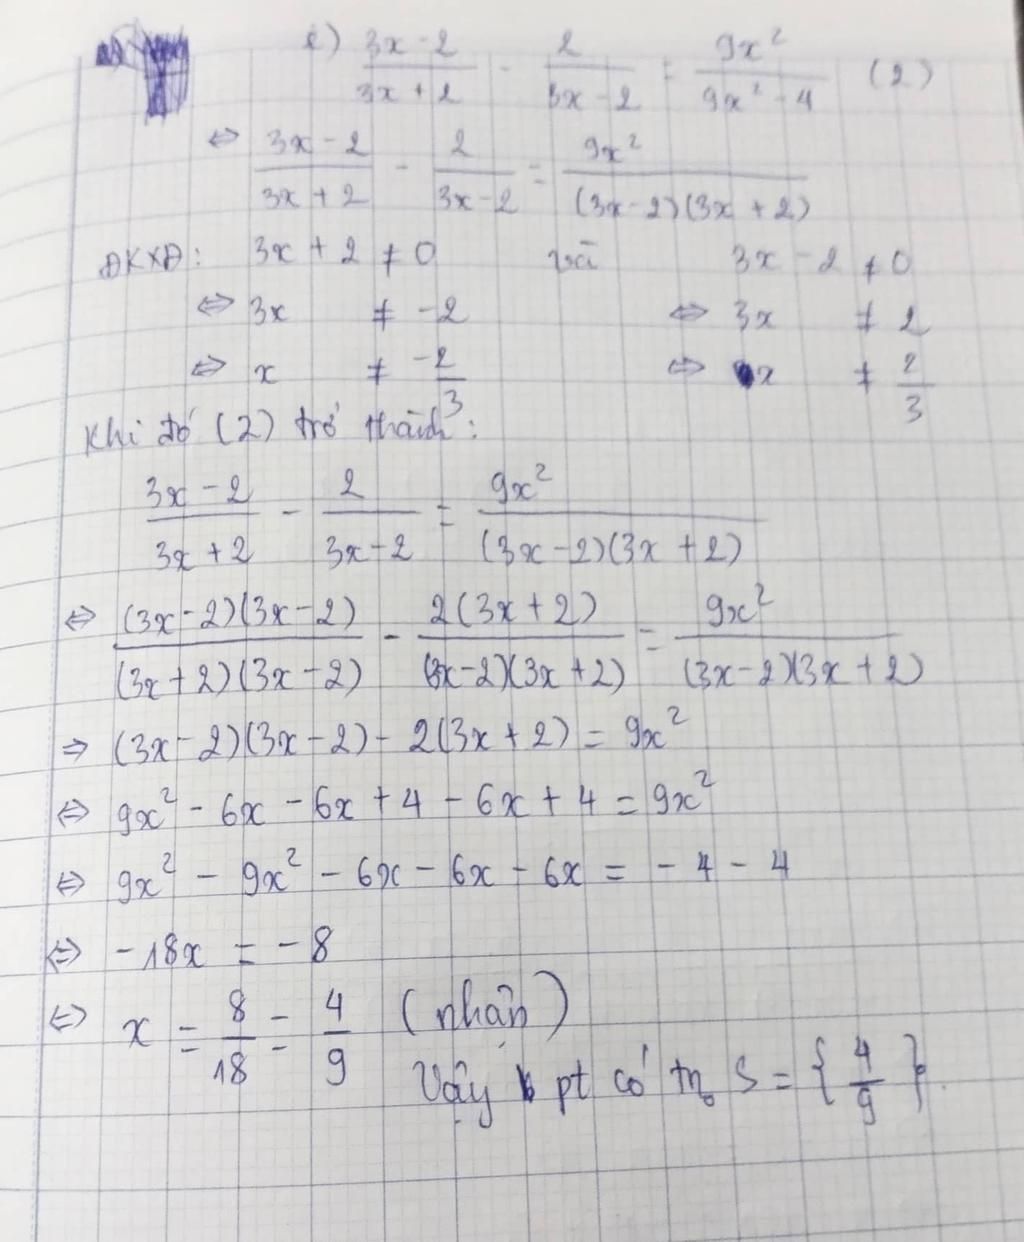 e) (3x - 2)/(3x + 2) - 2/(3x - 2) = 9x²/(9x² - 4) (2)
⇔ (3x - 2)/(3x + 2) - 2/(3x - 2) = 9x²/((3x - 2)(3x + 2))
ĐKXĐ: 3x + 2 ≠ 0 và 3x - 2 ≠ 0
⇔ 3x ≠ -2 ⇔ 3x ≠ 2
⇔ x ≠ -2/3 ⇔ x ≠ 2/3
Khi đó (2) trở thành:
(3x - 2)/(3x + 2) - 2/(3x - 2) = 9x²/((3x - 2)(3x + 2))
⇔ (3x - 2)(3x - 2)/((3x + 2)(3x - 2)) - 2(3x + 2)/((3x - 2)(3x + 2)) = 9x²/((3x - 2)(3x + 2))
⇒ (3x - 2)(3x - 2) - 2(3x + 2) = 9x²
⇔ 9x² - 6x - 6x + 4 - 6x + 4 = 9x²
⇔ 9x² - 9x² - 6x - 6x - 6x = - 4 - 4
⇔ -18x = -8
⇔ x = 8/18 = 4/9 (nhận)
Vậy pt có tn₀ S = {4/9}.